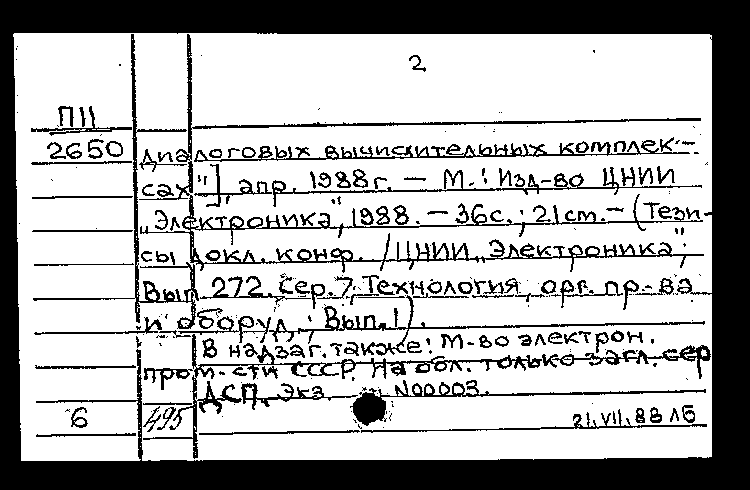 2
П11
2650 диалоговых вычислительных комплек-
сах"], апр. 1988г. — М.: Изд-во ЦНИИ
„Электроника", 1988. — 36с.; 21cm. — (Тези-
сы докл. конф. / ЦНИИ „Электроника";
Вып. 272. Сер. 7, Технология, орг. пр-ва
и оборуд.; Вып. 1).
В надзаг. также: М-во электрон.
пром-сти СССР. На обл. только загл. сер
ДСП. Экз. N00003.
6 495 21.VII.88 ЛБ